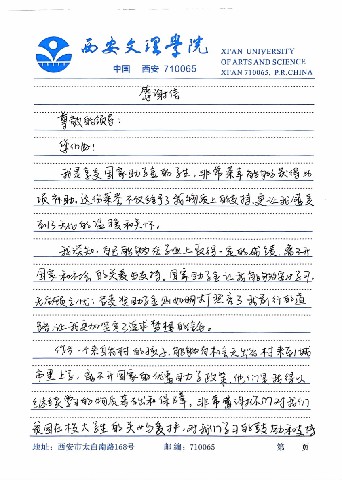 西安文理学院
中国 西安 710065
XI'AN UNIVERSITY
OF ARTS AND SCIENCE
XI'AN 710065, P.R.CHINA
感谢信
尊敬的领导：
您们好！
我是享受国家助学金的学生，非常荣幸能够获得此
项补助，这份荣誉不仅给予了我物质上的支持，更让我感受
到了无比的温暖和关怀。
我深知，自己能够在学业上取得一定的成绩，离不开
国家和学校的关爱与支持。国家助学金让我能够
无后顾之忧
路，让我更加坚定了追求梦想的信念。
作为一个来自农村的孩子，能够有机会走出农村来到城
市里上学，离不开国家的优惠助学政策，他们是我得以
继续学习的物质基础和保障，非常感谢 对我们
贫困在校大学生的关心与爱护，对我们学习的鼓励和支持
地址：西安市太白南路168号
邮编：710065
第 页